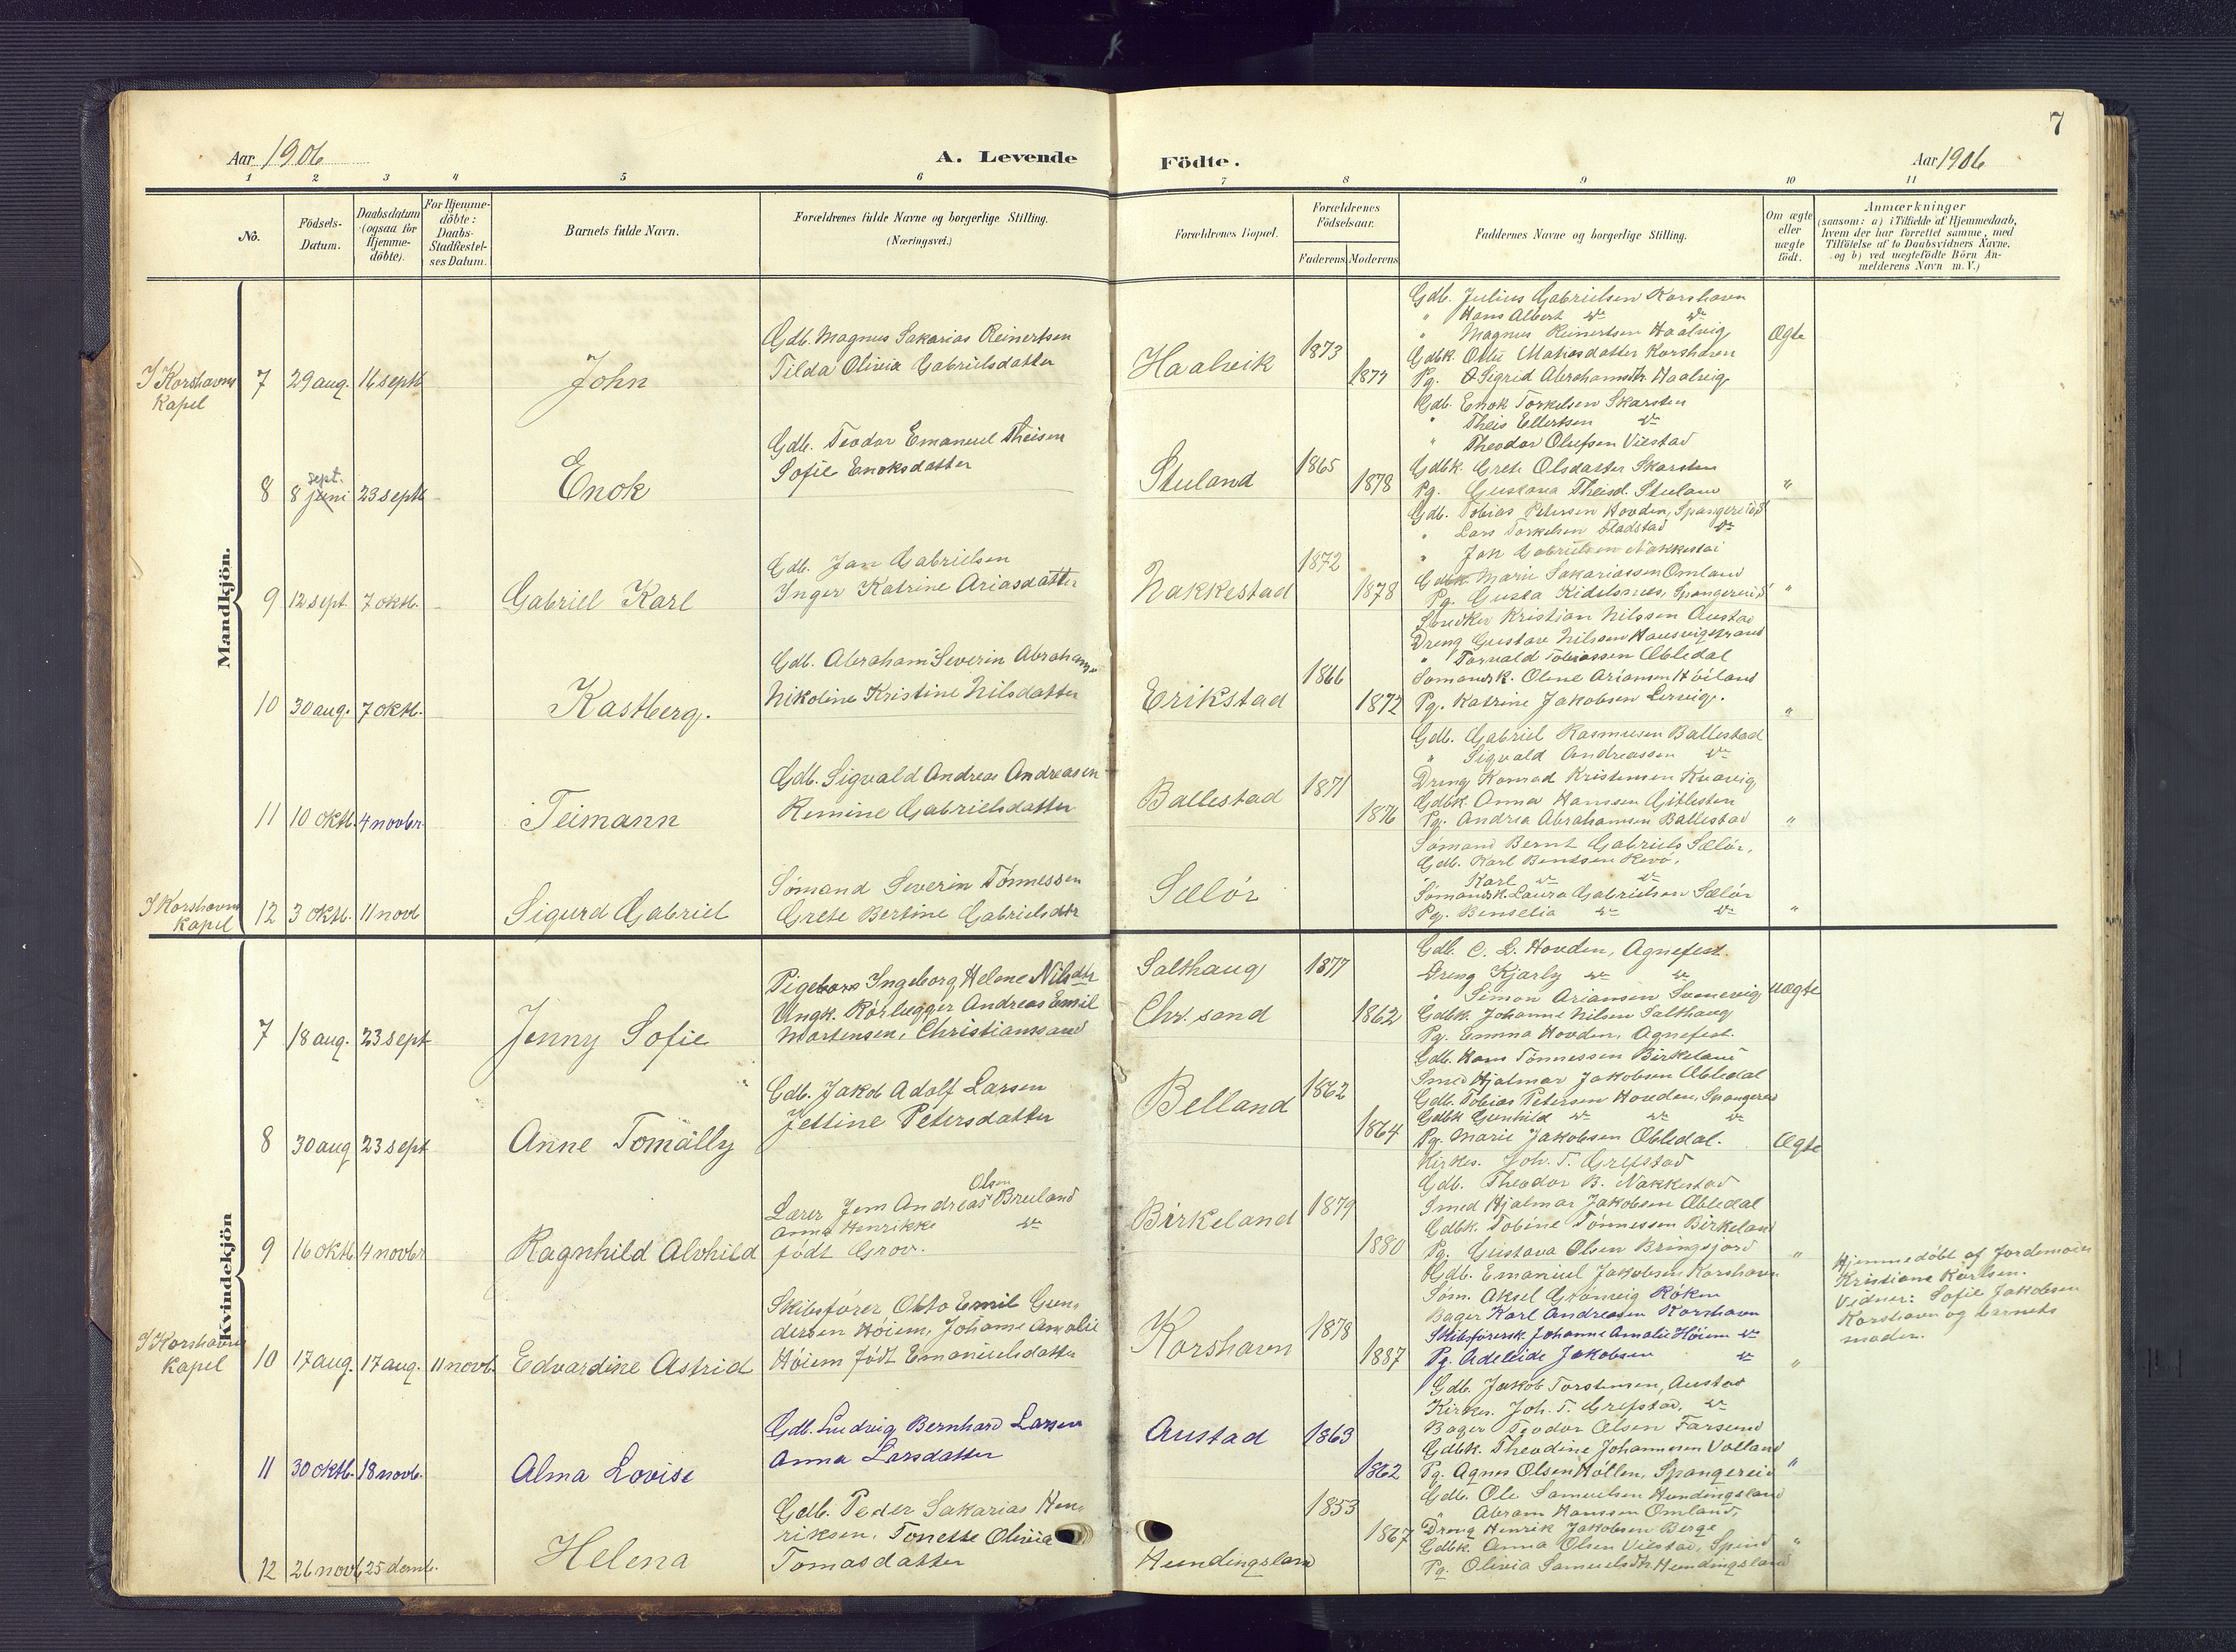 7
Aar 1906
A. Levende
Födte.
Aar 1906
1 2 3 4 5 6 7 8 9 10 11
No.
Födsels-
Datum.
Daabsdatum
(ogsaa for
Hjemme-
döbte).
For Hjemme-
döbte:
Daabs-
Stadfæstel-
ses Datum.
Barnets fulde Navn.
Forældrenes fulde Navne og borgerlige Stilling.
(Næringsvei.)
Forældrenes Bopæl.
Forældrenes
Födselsaar.
Faderens Moderens
Faddernes Navne og borgerlige Stilling.
Om ægte
eller
uægte
födt.
Anmærkninger
(saasom: a) i Tilfælde af Hjemmedaab,
hvem der har forrettet samme, med
Tilföielse af to Daabsvidners Navne.
og b) ved uægtefödte Börn An-
melderens Navn m. V.)
Mandkjön.
I Korshavns
Kapel
7 29 aug. 16 septb John
Gdb. Magnus Sakarias Reinertsen
Tilda Olivia Gabrielsdatter
Haalvik 1873
Gdb. Julius Gabrielsen Korshavn
" Hans Albert do do
" Magnus Reinertsen Haalvig
Gdbk. Matiasdatter Korshavn
Pg. Sigrid Abrahamsdtr. Haalvig
Ægte
8 8 juni sept. 23 septb Enok
Gdb. Teodor Emanuel Theisen
Sofie Enoksdatter
Stuland 1865 1878
Gdb. Enok Torkelsen Skarsten
" Theis Ellertsen do
" Theodor Olufsen Viestad
Gdbk. Grete Olsdatter Skarsten
Pg. Gustava Theisd. Stuland
"
9 12 sept. 7 oktb. Gabriel Karl
Gdb. Jan Gabrielsen
Inger Katrine Ariasdatter
Nakkestad 1872 1878
Gdb. Tobias Petersen Hovden, Spangereid
" Lars Torkelsen Stadstad do
" Jan Gabrielsen Nakkestad
Gdbk. Marie Sakariassen Omland
Pg. Gusta Kidelsnes, Spangereid
"
10 30 aug. 7 oktb. Kastberg.
Gdb. Abraham Severin Abrahams.
Nikoline Kristine Nilsdatter
Erikstad 1866 1872
Snedker Kristian Nilssen Austad
Dreng Gustav Nilssen
" Torvald Tobiassen Æbledal
Sömandsk. Oline Ariansen Höiland
Pg. Katrine Jakobsen Lervig.
"
11 10 oktb. 4 novbr. Teimann
Gdb. Sigvald Andreas Andreasen
Remine Gabrielsdatter
Ballestad 1871 1876
Gdb. Gabriel Rasmusen Ballestad
" Sigvald Andreassen do
Dreng Konrad Kristensen Kvavig
Gdbk. Anna Hansen Gitlesten
Pg. Andrea Abrahamsen Ballestad
"
I Korshavns
Kapel
12 3 oktb. 11 novb Sigurd Gabriel
Sömand Severin Tönnessen
Grete Bertine Gabrielsdtr
Sælör
Sömand Bernt Gabriels Sælör,
Gdb. Karl Bentsen Revö,
" Karl do do
Sömandsk. Laura Gabrielsen Sælör
Pg. Benselia do do
"
Kvindekjön
7 18 aug. 23 sept Jenny Sofie
Ingeborg Helene Nilsdtr
Ungk. Rörlægger Andreas Emil
Mortensen, Christianssand
Salthaug
Chr. sand
1877 1862
Gdb. C. L. Hovden, Agnefest.
Dreng Kjarly do do
" Simon Ariansen Svenevig
Gdbk. Johanne Nilsen Salthaug
Pg. Emma Hovden, Agnefest.
uægte
8 30 aug 23 sept Anne Tomally
Gdb. Jakob Adolf Larsen
Jettine Petersdatter
Belland 1862 1864
Gdb. Hans Tönnessen Birkeland
Smed Hjalmar Jakobsen Æbledal
Gdb. Tobias Petersen Hovden, Spangereid
Gdbk Gunhild do do do
Pg. Marie Jakobsen Æbledal.
Ægte
9 16 oktb. 4 novbr Ragnhild Alvhild
Lærer Jem Andreas Olsen Breiland
Anna Henrikke do
födt Grov.
Birkeland 1879 1880
Kirkes. Joh. T. Grefstad
Gdb. Theodor B. Nakkestad
Smed Hjalmar Jakobsen Æbledal
Gdbk. Tobine Tönnessen Birkeland
Pg. Gustava Olsen Bringsjord
"
I Korshavns
Kapel
10 17 aug. 17 aug. 11 novb. Edvardine Astrid
Skibsförer Otto Emil Gun-
dersen Höiem, Johanne Amalie
Höiem födt Emanuelsdatter
Korshavn 1878 1887
Gdb. Emanuel Jakobsen Korshavn
Söm. Aksel Gromvig Röken
Bager Karl Andreasen Korshavn
Skibsförersk. Johanne Amalie Höiem do
Pg. Adeleide Jakobsen do
"
Hjemmedöbt af Jordemoder
Kristiane Karlsen.
Vidner: Sofie Jakobsen
Korshavn og barnets
moder.
11 30 oktb. 18 novb. Alma Lovise
Gdb. Ludvig Bernhard Larsen
Anna Larsdatter
Austad 1863 1862
Gdb. Jakob Torstensen, Austad
Kirkes. Joh. T. Grefstad, do
Bager Teodor Olsen Farsund
Gdbk. Theodine Johannesen Volland
Pg. Agnes Olsen Höllen, Spangereid
"
12 26 novb 25 decmb. Helena
Gdb. Peder Sakarias Hen-
riksen, Tonette Olivia
Tomasdatter
Hundingsland
1853 1867
Gdb. Ole Samuelsen Hundingsland
" Abram Hanssen Omland,
Dreng Henrik Jakobsen Berge
Gdbk. Anna Olsen Viestad, Spind
Pg. Olivia Samuelsdtr. Hundingsland
"